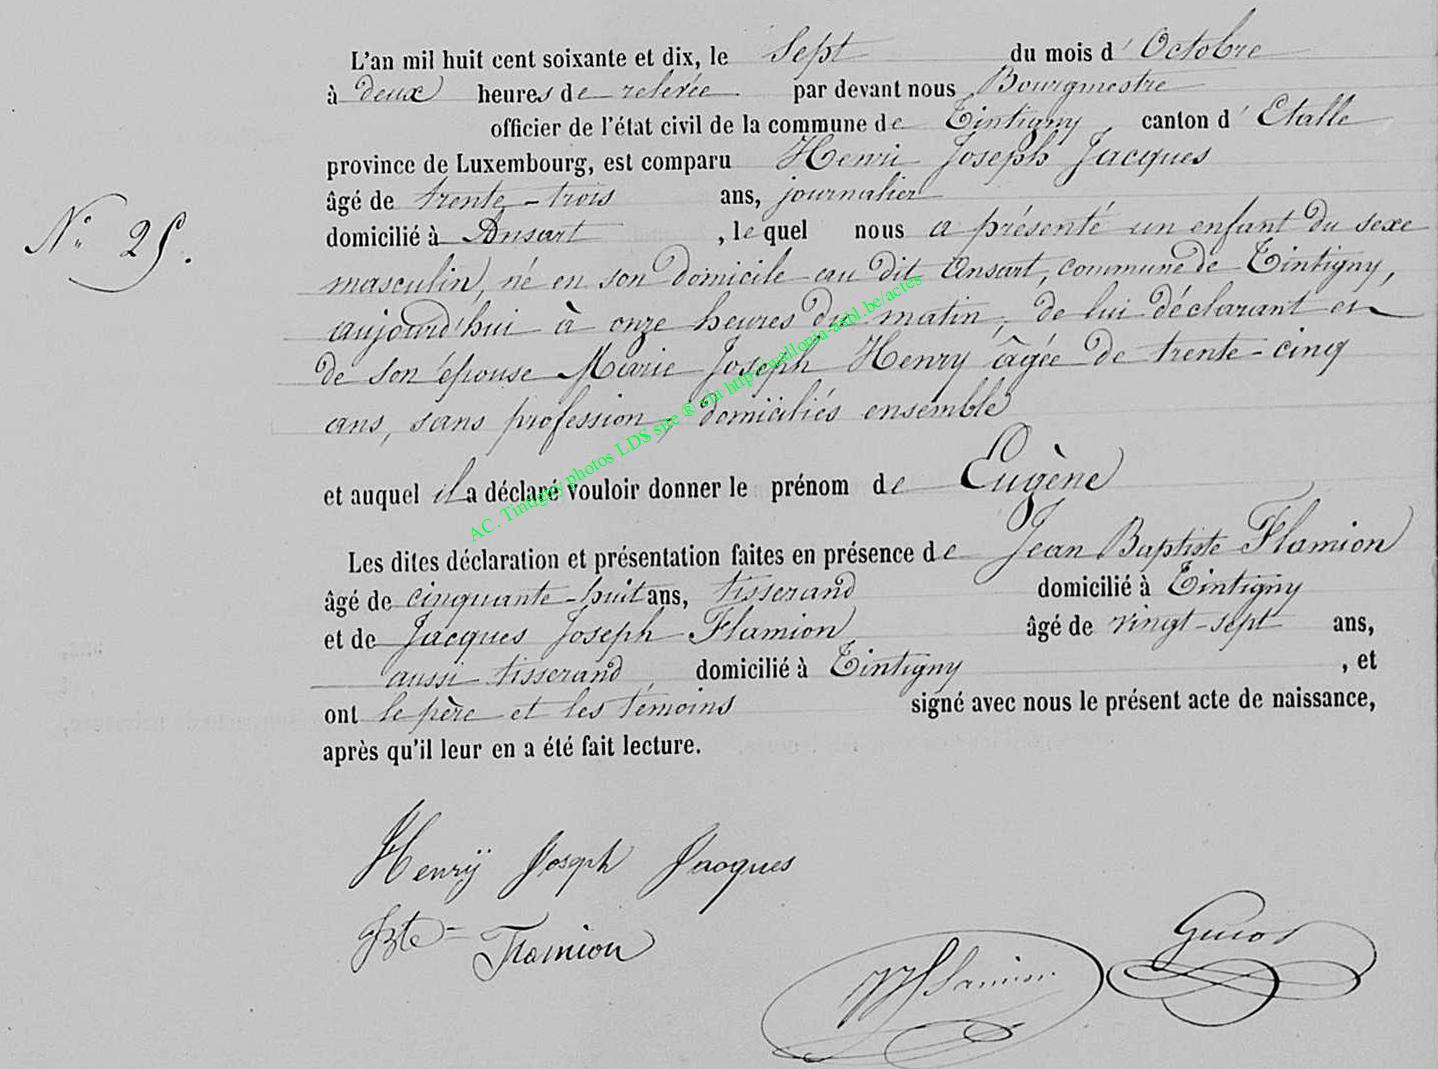 L'an mil huit cent soixante et dix, le Sept du mois d' Octobre
à deux heures de relevée par devant nous Bourgmestre
officier de l'état civil de la commune de Tintigny, canton d' Etalle
province de Luxembourg, est comparu Henri Joseph Jacques
âgé de trente-trois ans, journalier
domicilié à Ansart, lequel nous a présenté un enfant du sexe
N° 25.
masculin, né en son domicile au dit Ansart, commune de Tintigny,
aujourd'hui à onze heures du matin, de lui déclarant et
de son épouse Marie Joseph Henry âgée de trente-cinq
ans, sans profession, domiciliés ensemble
et auquel il a déclaré vouloir donner le prénom de Eugène
AC. Tintigny photos LDS site ® via http://wallonia-asbl.be/actes
Les dites déclaration et présentation faites en présence de Jean Baptiste Flamion
âgé de cinquante-huit ans, tisserand domicilié à Tintigny
et de Jacques Joseph Flamion âgé de vingt-sept ans,
aussi tisserand domicilié à Tintigny, et
ont le père et les témoins signé avec nous le présent acte de naissance,
après qu'il leur en a été fait lecture.
Henrÿ Joseph Jacques
JBte Flamion
JJFlamion